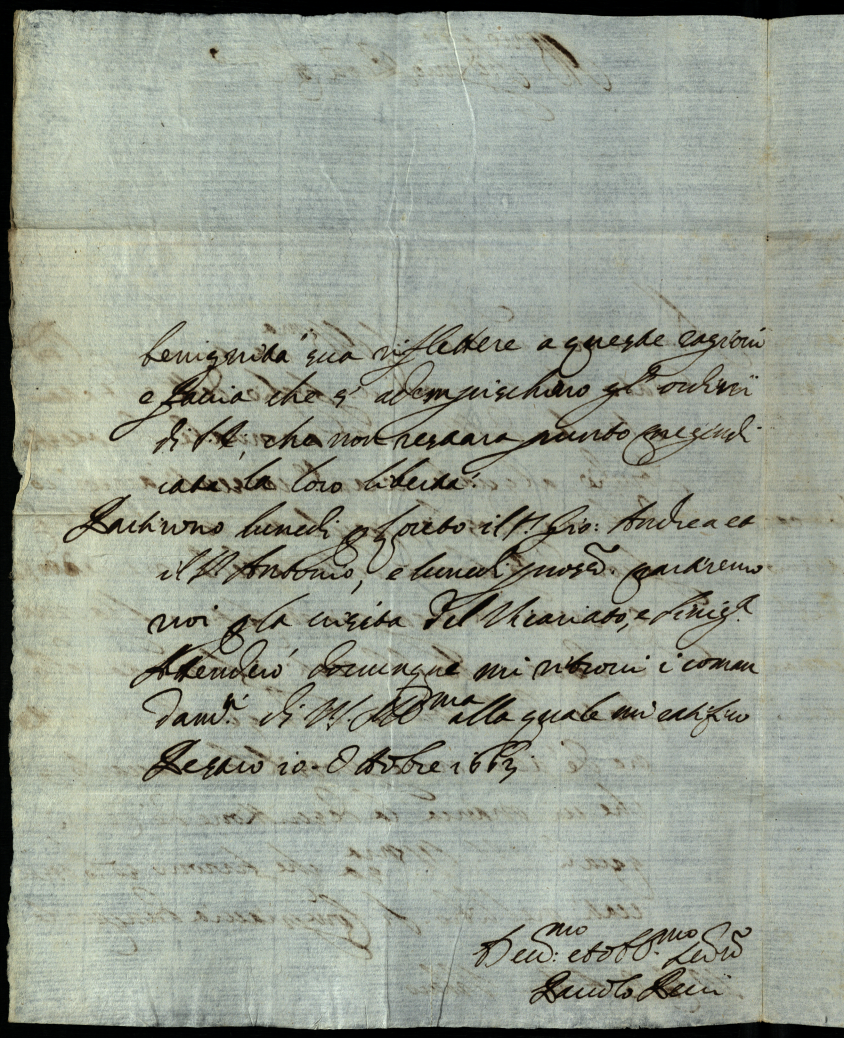 benignità sua riflettere a queste ragioni
e facia che s' adempischino gl' ordini
di che non restara punto pregiudi
cata la loro libertà.
Partirono lunedì p loreto il S. Gio: Andrea et
il S. Antonio, e lunedì pross.º partiremo
noi p la visita del Vicariato, e Sinig.ª
Attenderò dovunque mi ritrovi i coman
dam.ti di V.S. Ill.ma alla quale mi ratifico
Pesaro 10. Ottobre 1663
Dev.mo et obb.mo
Paolo